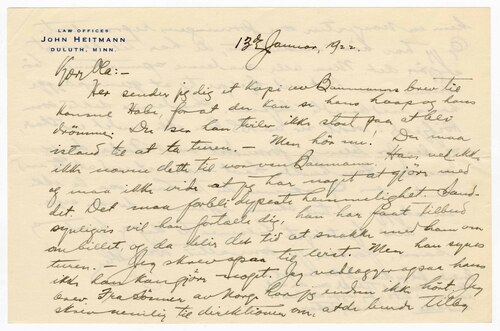 LAW OFFICES
JOHN HEITMANN
DULUTH, MINN.
13de Januar, 1922.
Kjære Ola:-
Her sender jeg dig et kopi av Baumanns brev til
konsul Hobe, for at du kan se hans haap og hans
drømme. Du ser han tviler ikke stort paa at bli
istand til at ta turen. - Men hør nu! Du maa
ikke nævne dette til vor ven Baumann. Han ved ikke
og maa ikke vite at jeg har noget at gjøre med
det. Det maa forbli dypeste hemmelighet. Sand-
synligvis vil han fortælle dig, han har faat tilbud
om billet, og da blir det tid at snakke med ham om
turen. - Jeg skrev ogsaa til
ikke han kan gjøre noget. Jeg vedlægger ogsaa hans
brev. Fra Sønner av Norge har jeg endnu ikke hørt. Jeg
skrev nemlig til direktionen om, at de burde